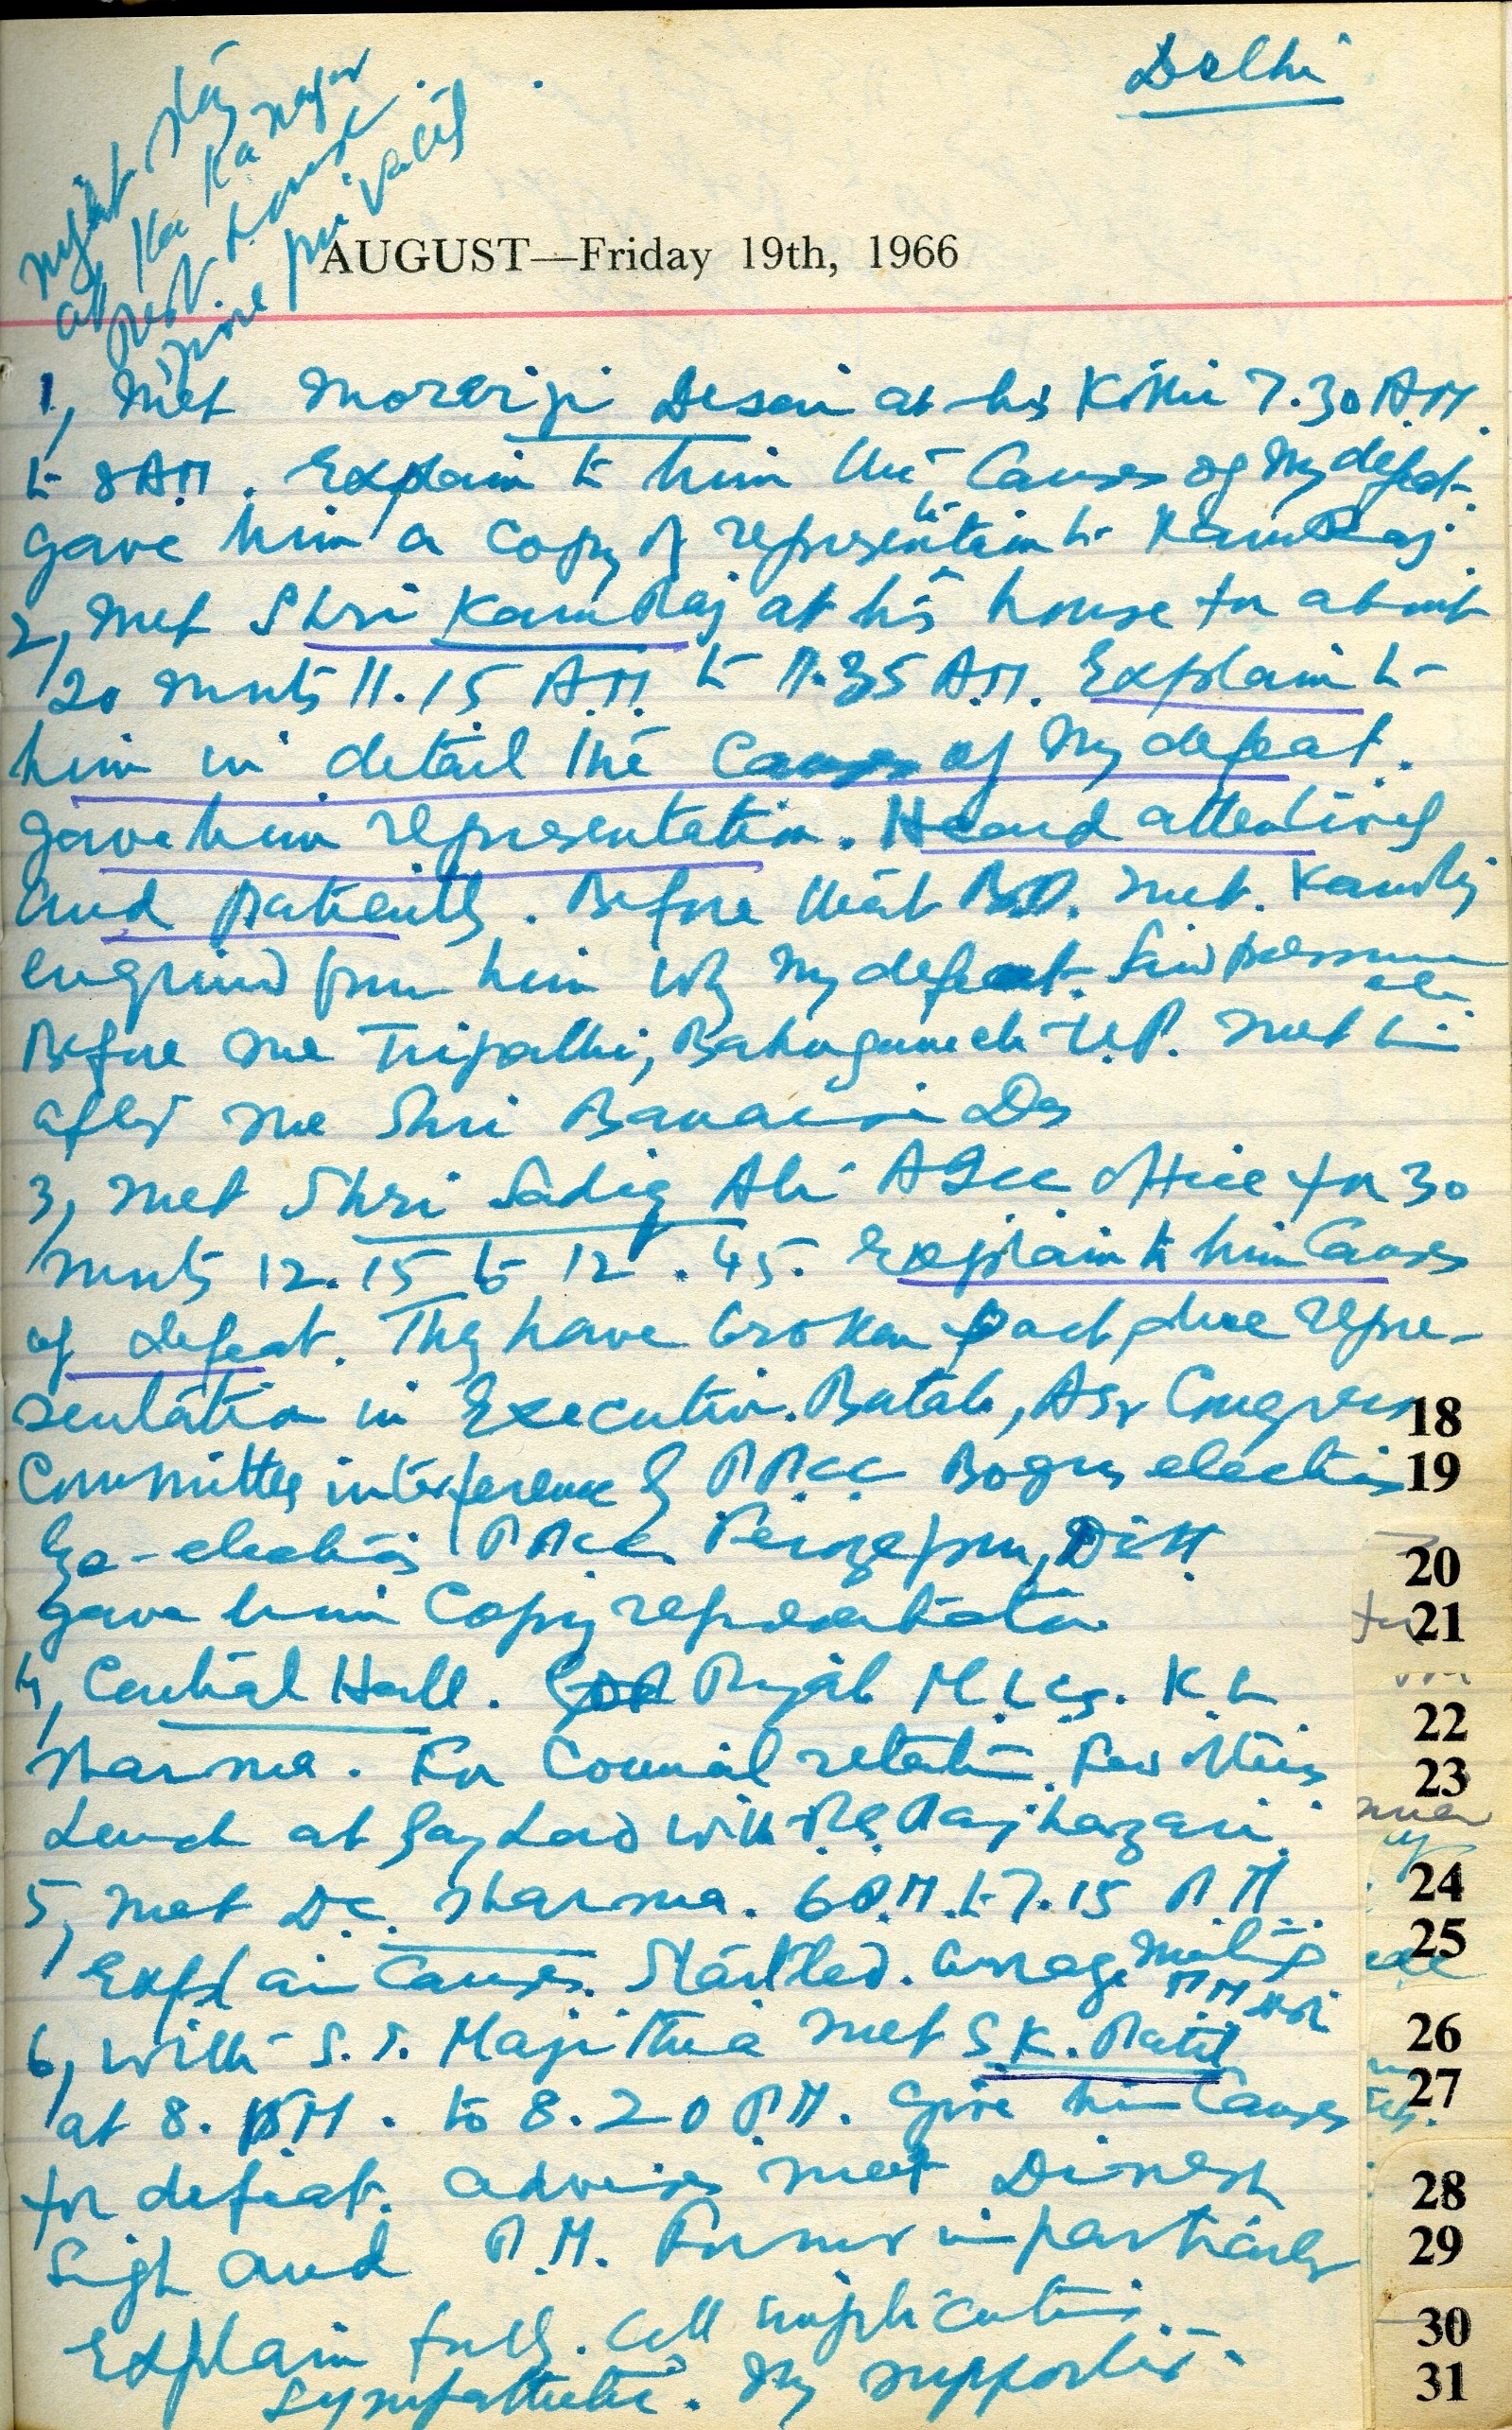 Delhi
night stay
at Ka Ka Nagar
rest house.
more privacy
AUGUST—Friday 19th, 1966
1, Met Morarji Desai at his Kothi 7.30 A.M.
to 8 A.M. Explain to him the Causes of My defeat.
gave him a Copy of representation to Kamraj
2, Met Shri KamRaj at his house for about
20 mnts 11.15 A.M. to 11.35 A.M. Explain to
him in detail the Causes of My defeat.
gave him representation. Heard attentively
and patiently. Before that B.D. met. Kamraj
enquired from him why My defeat. Said
Before me Tripathi, Bahuguna U.P. met him
after me Shri Banarsi Das
3, Met Shri Sadiq Ali AICC office for 30
mnts 12.15 to 12.45. Explain to him Causes
of defeat. They have broken pact, due repre-
sentation in Executive. Batala, Asr Congress
Committee interference by PPCC Bogus elections
elections PPCC Ferozepur, Distt
gave him Copy representation
4, Central Hall. Punjab M.L.Cs. K.L.
Sharma. For Council Few others
Lunch at Gay Lord with Raj hazari.
5, Met D.C. Sharma. 6 P.M. to 7.15 P.M.
Explain Causes. Startled. arrage Meeting
6, With S.S. Majithia met S.K. Patil
at 8. P.M. to 8.20 P.M. give him Causes
for defeat. advises meet Dinesh
Sigh and P.M. Former impartialy
Explain fully. all implications.
Sympathetic. My supporter.
18
19
20
21
22
23
24
25
26
27
28
29
30
31